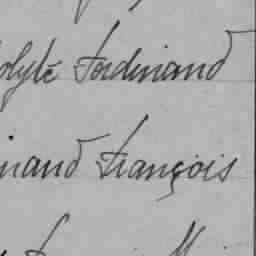 olyte Ferdinand
inand François